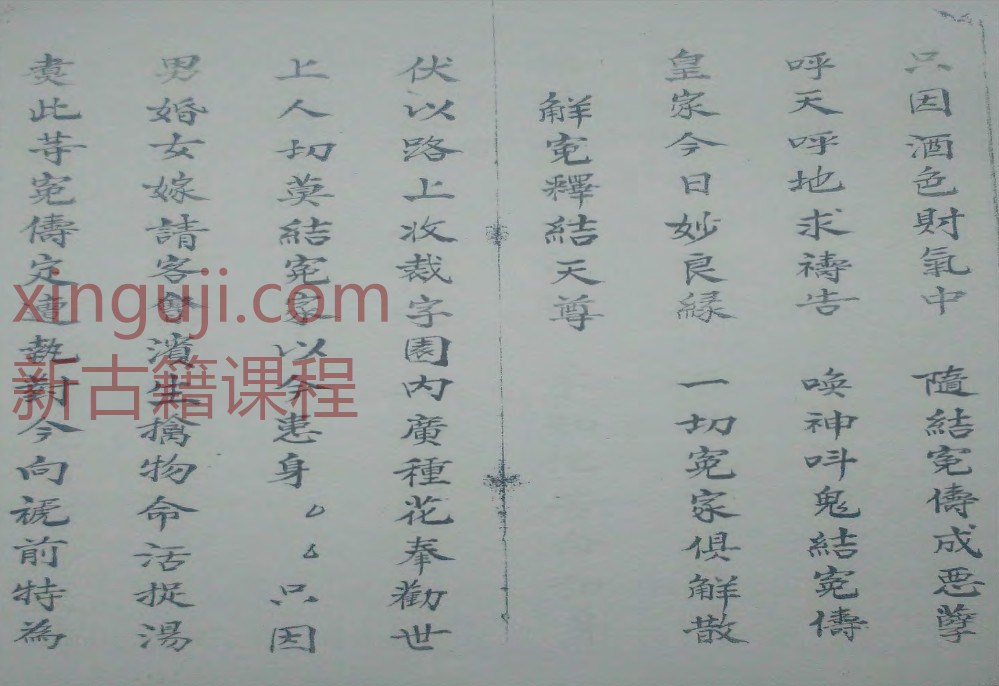 只因酒色財氣中 隨結寃儔成悪孽
呼天呼地求禱告 喚神呌鬼結寃儔
皇家今日妙良緣 一切寃家俱觧散
觧寃釋結天尊
伏以路上收裁字園內廣種花奉勸世
上人切莫結寃家以今患身 只因
男婚女嫁請客會濱生擒物命活捉湯
𤇺此等寃儔定遭執對今向裭前特為
xinguji.com
新古籍课程